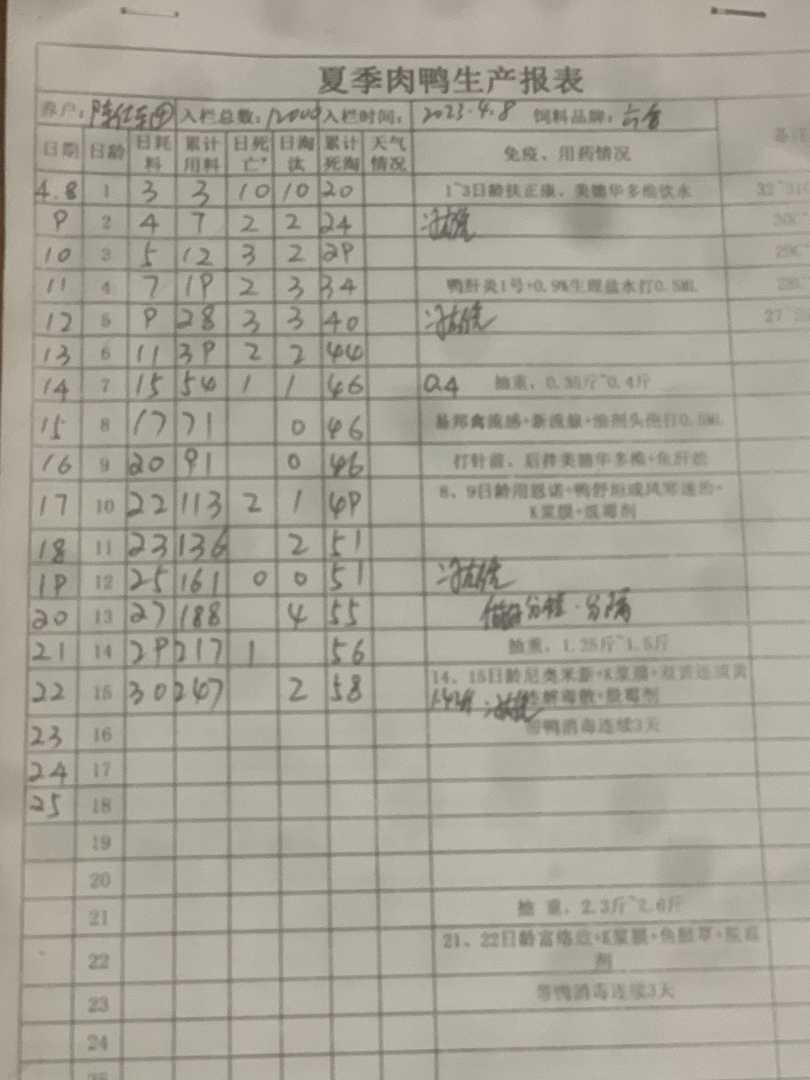 夏季肉鸭生产报表
养户: 入栏总数: 12000 入栏时间: 2023.4.8 饲料品牌:
日期 日龄 日耗料 累计用料 日死亡 日淘汰 累计死淘 天气情况 免疫、用药情况 备注
4.8 1 3 3 10 10 20 1~3日龄扶正康、美德华多维饮水
9 2 4 7 2 2 24
10 3 5 12 3 2 29
11 4 7 19 2 3 34 鸭肝炎1号+0.9%生理盐水打0.5ML
12 5 9 28 3 3 40
13 6 11 39 2 2 44
14 7 15 54 1 1 46 0.4 抽重、0.35斤~0.4斤
15 8 17 71 0 46 禽流感+新流腺+油剂头孢打0.5ML
16 9 20 91 0 46 打针前、后拌美德华多维+鱼肝油
17 10 22 113 2 1 49 8、9日龄用恩诺+鸭舒
K浆膜+脱霉剂
18 11 23 136 2 51
19 12 25 161 0 0 51
20 13 27 188 4 55
21 14 29 217 1 56 抽重、1.25斤~1.5斤
22 15 30 247 2 58 14、15日龄尼奥米新+K浆膜+
解毒散+脱霉剂
23 16 带鸭消毒连续3天
24 17
25 18
19
20
21 抽 重、2.3斤~2.6斤
22 21、22日龄 +K浆膜+鱼腥草+脱霉剂
23 带鸭消毒连续3天
24